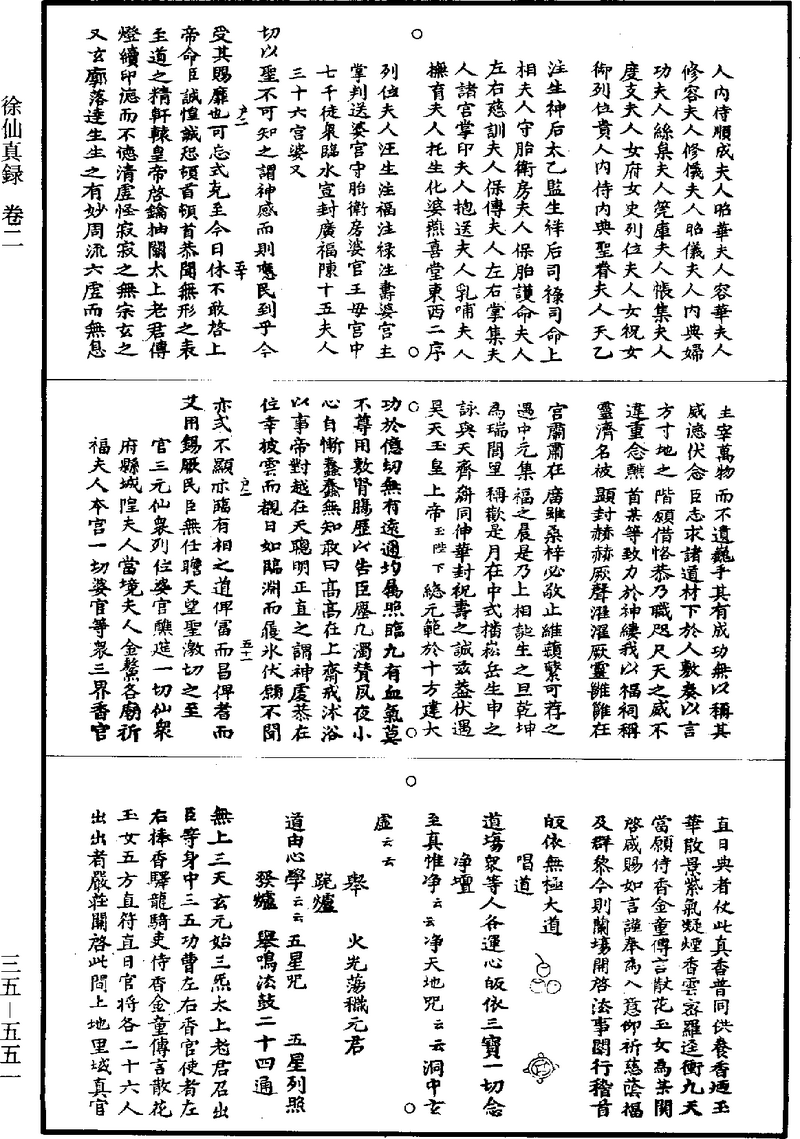 徐仙真録　卷二
三五—五五一
人內侍順成夫人昭華夫人容華夫人
修容夫人修儀夫人昭儀夫人內典婦
功夫人絲枲夫人筦庫夫人帳集夫人
度支夫人女府女史列位夫人女祝女
御列位貴人內侍內典聖眷夫人天乙
注生神后太乙監生祥后司祿司命上
相夫人守胎衛房夫人保胎護命夫人
左右慈訓夫人保傳夫人左右掌集夫
人諸宮掌印夫人抱送夫人乳哺夫人
撫育夫人托生化婆燕喜堂東西二序
列位夫人注生注福注祿注壽婆宮主
掌判送婆宮守胎衛房婆官王母宮中
七千徒眾臨水宣封廣福陳十五夫人
三十六宮婆又
切以聖不可知之謂神感而則應民到乎今
受其賜靡也可忘式克至今日休不敢啓上
帝命臣誠惶誠恐頓首頓首恭聞無形之表
至道之精軒轅皇帝啓鑰抽關太上老君傳
燈續印㴠而不德清虛怪寂寂之無宗玄之
又玄廓落達生生之有妙周流六虛而無息
主宰萬物而不遺巍乎其有成功無以稱其
威德伏念臣志求諸道材下於人敷奏以言
方寸地之階願借恪恭乃職咫尺天之威不
違重念熊首某等致力於神縷我以福祠稱
靈濟名被顯封赫赫厥聲濯濯厥靈雝雝在
宮肅肅在廣雖桑梓必敬止維蘋蘩可荐之
遇中元集福之晨是乃上相誕生之旦乾坤
為瑞閭里稱歡是月在中式橫崧岳生申之
詠與天齊齡同伸華封祝壽之誠玆蓋伏遇
昊天玉皇上帝玉陛下總元範於十方建大
功於億刼無有遠邇均屬照臨凡有血氣莫
不尊用敷腎腸歷以告臣塵凡濁贊夙夜小
心自慚蠢蠢無知敢曰高高在上齋戒沐浴
以事帝對越在天聰明正直之謂神虔恭在
位幸披雲而覩日如臨淵而履氷伏願不聞
亦式不顯亦臨有相之道俾富而昌俾耆而
艾用錫厥民臣無任瞻天望聖激切之至
官三元仙眾列位婆官醮筵一切仙眾
府縣城隍夫人當境夫人金鰲各廟祈
福夫人本宮一切婆官等衆三界香官
直日典者仗此真香普同供養香逥玉
華散景紫氣凝煙香雲宻羅逕衝九天
當願侍香金童傳言散花玉女為某関
啓咸賜如言謹奉為入意仰祈慈蔭福
及群黎今則蘭塲開啓法事関行稽首
皈依無極大道
唱道
道塲衆等人各運心皈依三寶一切念
淨壇
至真惟净云云净天地咒云云洞中玄
虛云云
舉　火光蕩穢元君
跪爐
道由心學云云五星咒　五星列照
發爐　舉鳴法鼓二十四通
無上三天玄元始三炁太上老君召出
臣等身中三五功曹左右香官使者左
右捧香驛龍騎吏侍香金童傳言散花
玉女五方直符直日官將各二十六人
出出者嚴莊關啓此間上地里域真官